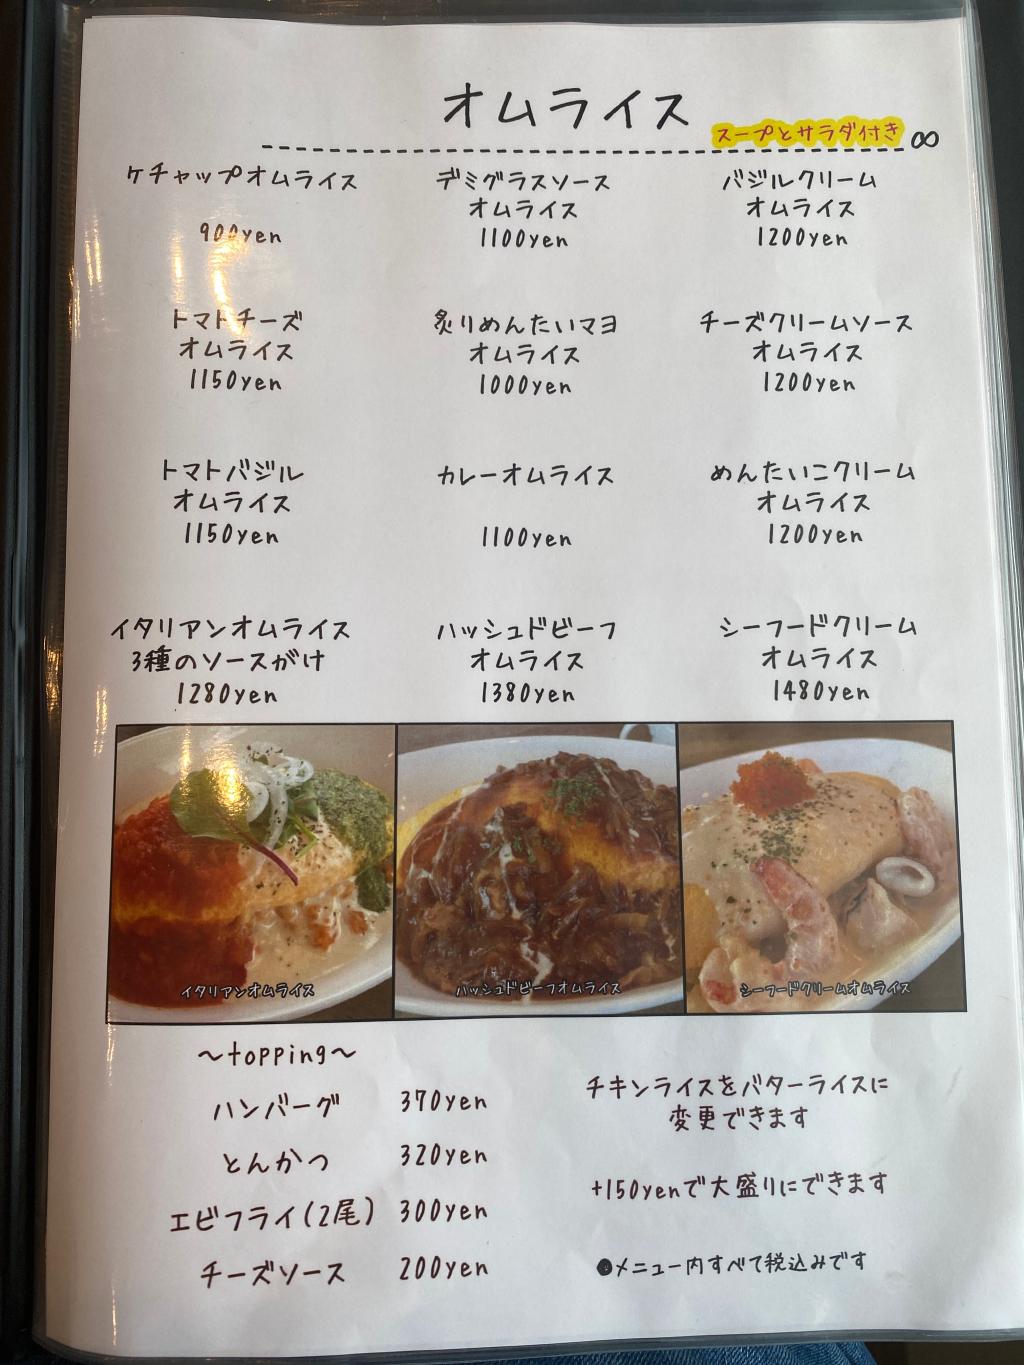 オムライス
スープとサラダ付き
ケチャップオムライス
900yen
デミグラスソース
オムライス
1100yen
バジルクリーム
オムライス
1200yen
トマトチーズ
オムライス
1150yen
炙りめんたいマヨ
オムライス
1000yen
チーズクリームソース
オムライス
1200yen
トマトバジル
オムライス
1150yen
カレーオムライス
1100yen
めんたいこクリーム
オムライス
1200yen
イタリアンオムライス
3種のソースがけ
1280yen
ハッシュドビーフ
オムライス
1380yen
シーフードクリーム
オムライス
1480yen
イタリアンオムライス
ハッシュドビーフオムライス
シーフードクリームオムライス
〜topping〜
ハンバーグ 370yen
とんかつ 320yen
エビフライ(2尾) 300yen
チーズソース 200yen
チキンライスをバターライスに
変更できます
+150yenで大盛りにできます
●メニュー内すべて税込みです